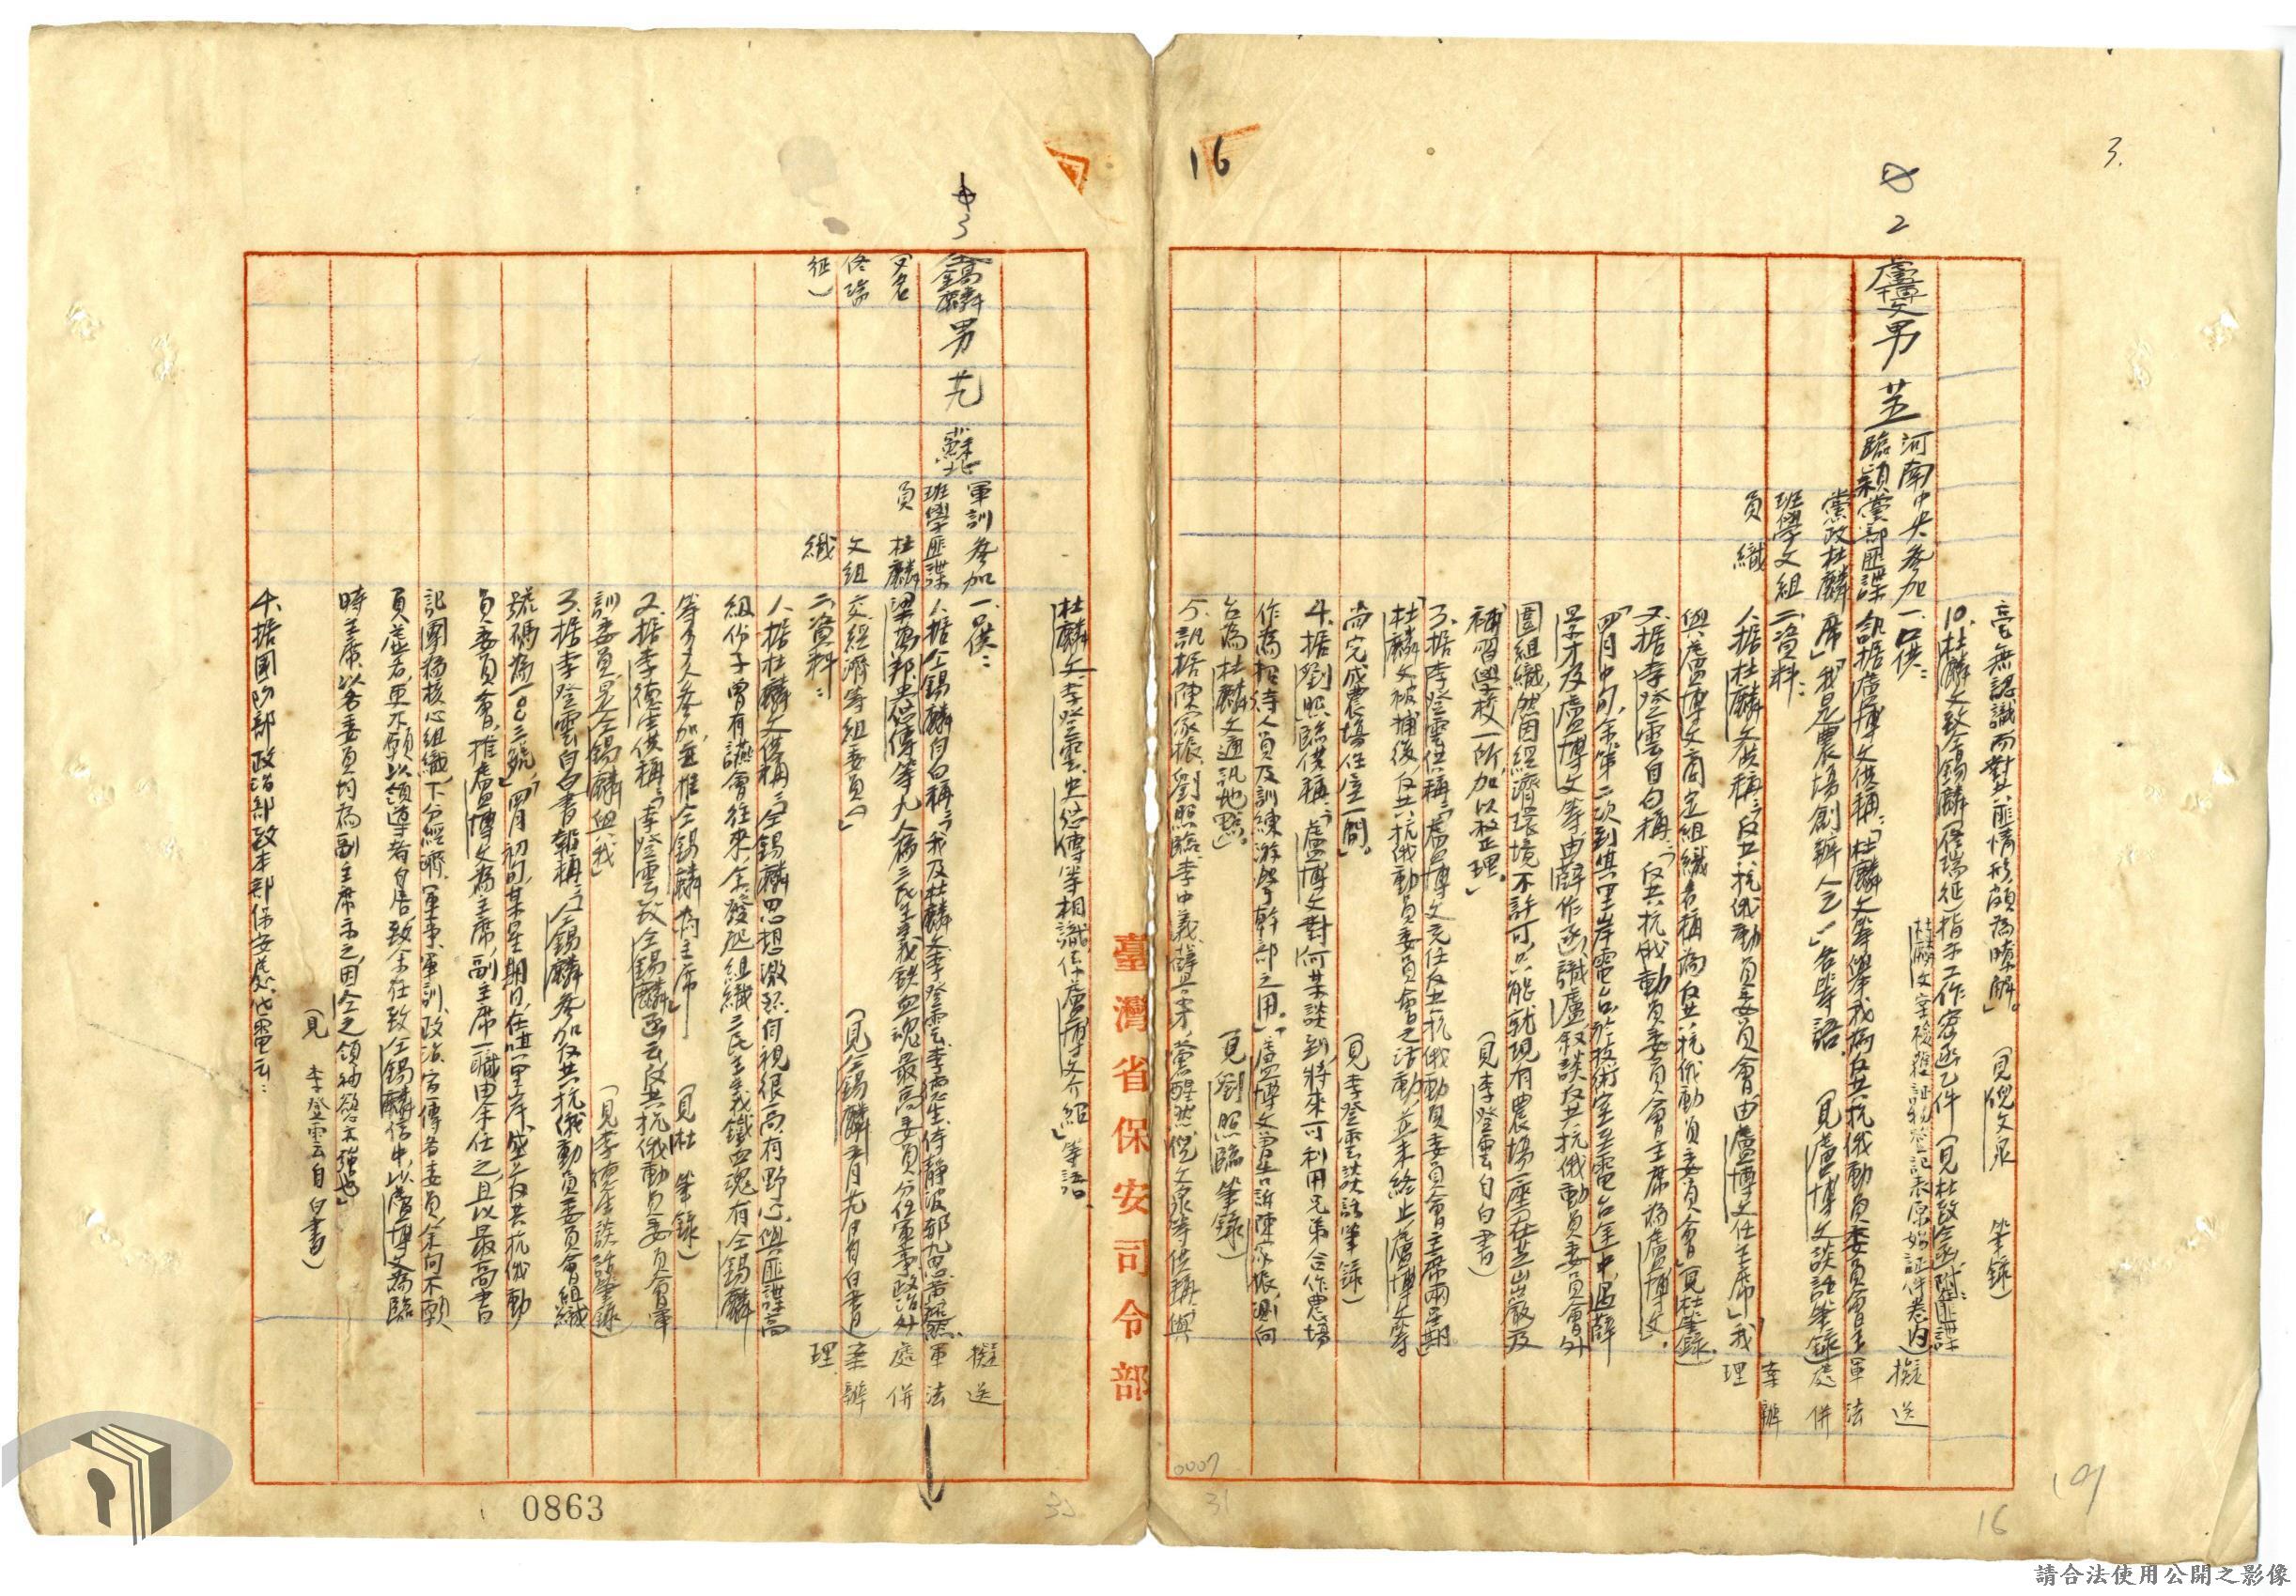 3.
2
毫無認識而對共匪情形頗為暸解。」(見倪文泉筆錄)
10.杜麟文致仝錫麟(佟瑞征)指示工作密函乙件(見杜致仝函附匪諜
杜麟文案檢獲証物登記表原始証件卷內)
盧博文 男 河南臨潁 中央黨部黨政班學員
參加匪諜杜麟文組織
一、口供:
訊據盧博文供稱:「杜麟文等舉我為反共抗俄動員委員會主
席」「我是農場創辦人之一」各等語。(見盧博文談話筆錄)
擬送軍法處併案辦理
二、資料:
1.據杜麟文供稱:「反共抗俄動員委員會由盧博文任主席」「我
與盧博文商定組織名稱為反共抗俄動員委員會」(見杜筆錄)
2.據李登雲自白稱:「反共抗俄動員委員會主席為盧博文。」
「四月中旬,余第二次到其里岸電台於技術室至電台途中遇薛
景才及盧博文等由薛作函識盧敘談反共抗俄動員委員會外
圍組織,然因經濟環境不許可只能就現有農場一座在芝山巖及
補習學校一所,加以整理。」(見李登雲自白書)
3.據李登雲供稱:「盧博文充任反共抗俄動員委員會主席兩星期」
「杜麟文被捕後,反共抗俄動員委員會之活動並未終止盧博文等
尚完成農場住屋一間。(見李登雲談話筆錄)
4.據劉照臨供稱:「盧博文對何某談到將來可利用兄弟合作農場
作為招待人員及訓練游擊幹部之用」。「盧博文曾告訴陳家振,詢問
台為杜麟文通訊地點」。(見劉照臨筆錄)
5.訊據陳家振、劉照臨、李中義、薛景才、蕭醒然、倪文泉等供稱:與
0007
31
16
臺灣省保安司令部
16
3
杜麟文、李登雲、史浩傳等相識係盧博文介紹」等語。
仝錫麟(又名佟瑞征) 男 蘇北 軍訓班學員
參加匪諜杜麟文組織
一、口供:
1.據仝錫麟自白稱:「我及杜麟文、李登雲、李德生、侍靜波、鄒九思、蕭醒然、
梁為邦、史浩傳等九人為三民主義鉄血魂最高委員分任軍事政治外
交經濟等組委員。」(見仝錫麟五月九日自白書)
擬送軍法處併案辦理
二、資料:
1.據杜麟文供稱:「仝錫麟思想激烈自視很高,有野心與匪諜高
組份子曾有讌會往來。余發起組織三民主義鐵血魂有仝錫麟
等多人參加並推仝錫麟為主席」(見杜筆錄)
2.據李德生供稱:「李登雲致仝錫麟函云反共抗俄動員委員會軍
訓委員是仝錫麟與我」(見李德生談話筆錄)
3.據李登雲自白書報稱:「仝錫麟參加反共抗俄動員委員會組織
號碼為一〇三號」,「四月初旬某星期日,在其里岸成立反共抗俄動
員委員會,推盧博文為主席,副主席一職由余任之,且以最高書
記團為核心組織,下分經濟、軍事、軍訓、政治、宣傳各委員,余向不願
負虛名,更不願以領導者自居,致余在致仝錫麟信中,以盧博文為臨
時主席,以各委員均為副主席示之,因仝之領袖慾至強也」
(見李登雲自白書)
4.據國防部政治部致本部保安處代電云:
0863
請合法使用公開之影像